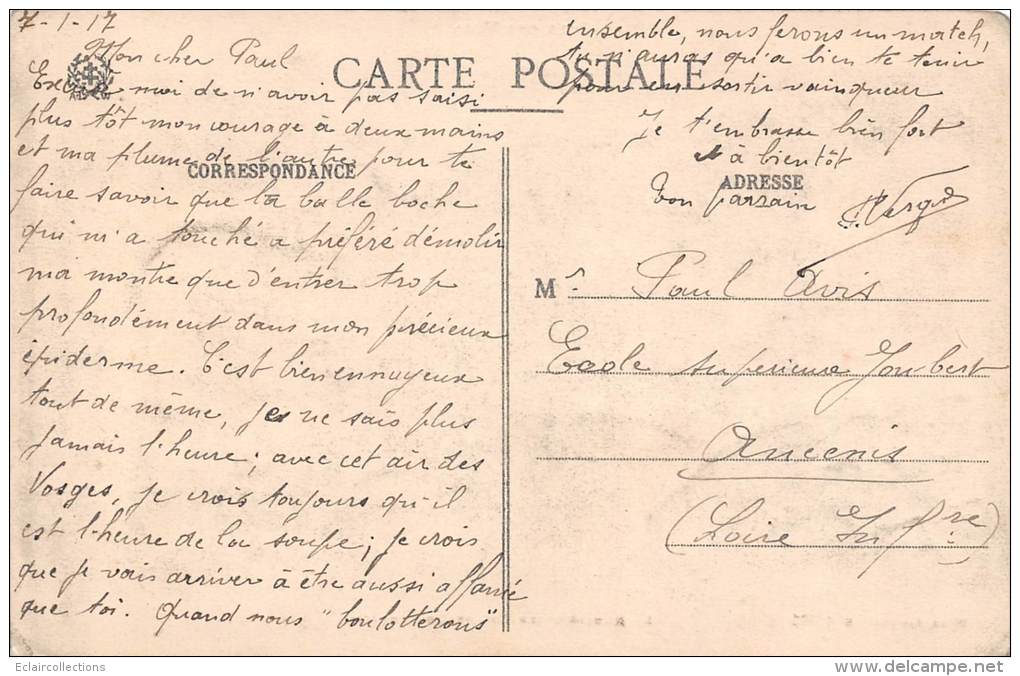 7-1-17
Mon cher Paul
CARTE POSTALE
Excuse moi de n'avoir pas saisi
plus tôt mon courage à deux mains
et ma plume de l'autre, pour te
CORRESPONDANCE
faire savoir que la balle boche
qui m'a touché a préféré démolir
ma montre que d'entrer trop
profondément dans mon précieux
épiderme. C'est bien ennuyeux
tout de même, je ne sais plus
jamais l'heure; avec cet air des
Vosges, je crois toujours qu'il
est l'heure de la soupe; je crois
que je vais arriver à être aussi affamé
que toi. Quand nous "boulotterons"
ensemble, nous ferons un match,
tu n'auras qu'à bien te tenir
pour en sortir vainqueur
Je t'embrasse bien fort
à bientôt
Ton parrain
ADRESSE
M r. Paul Avis
Ecole supérieure Joubert
Ancenis
(Loire Infre)
Eclaircollections
delcampe.net